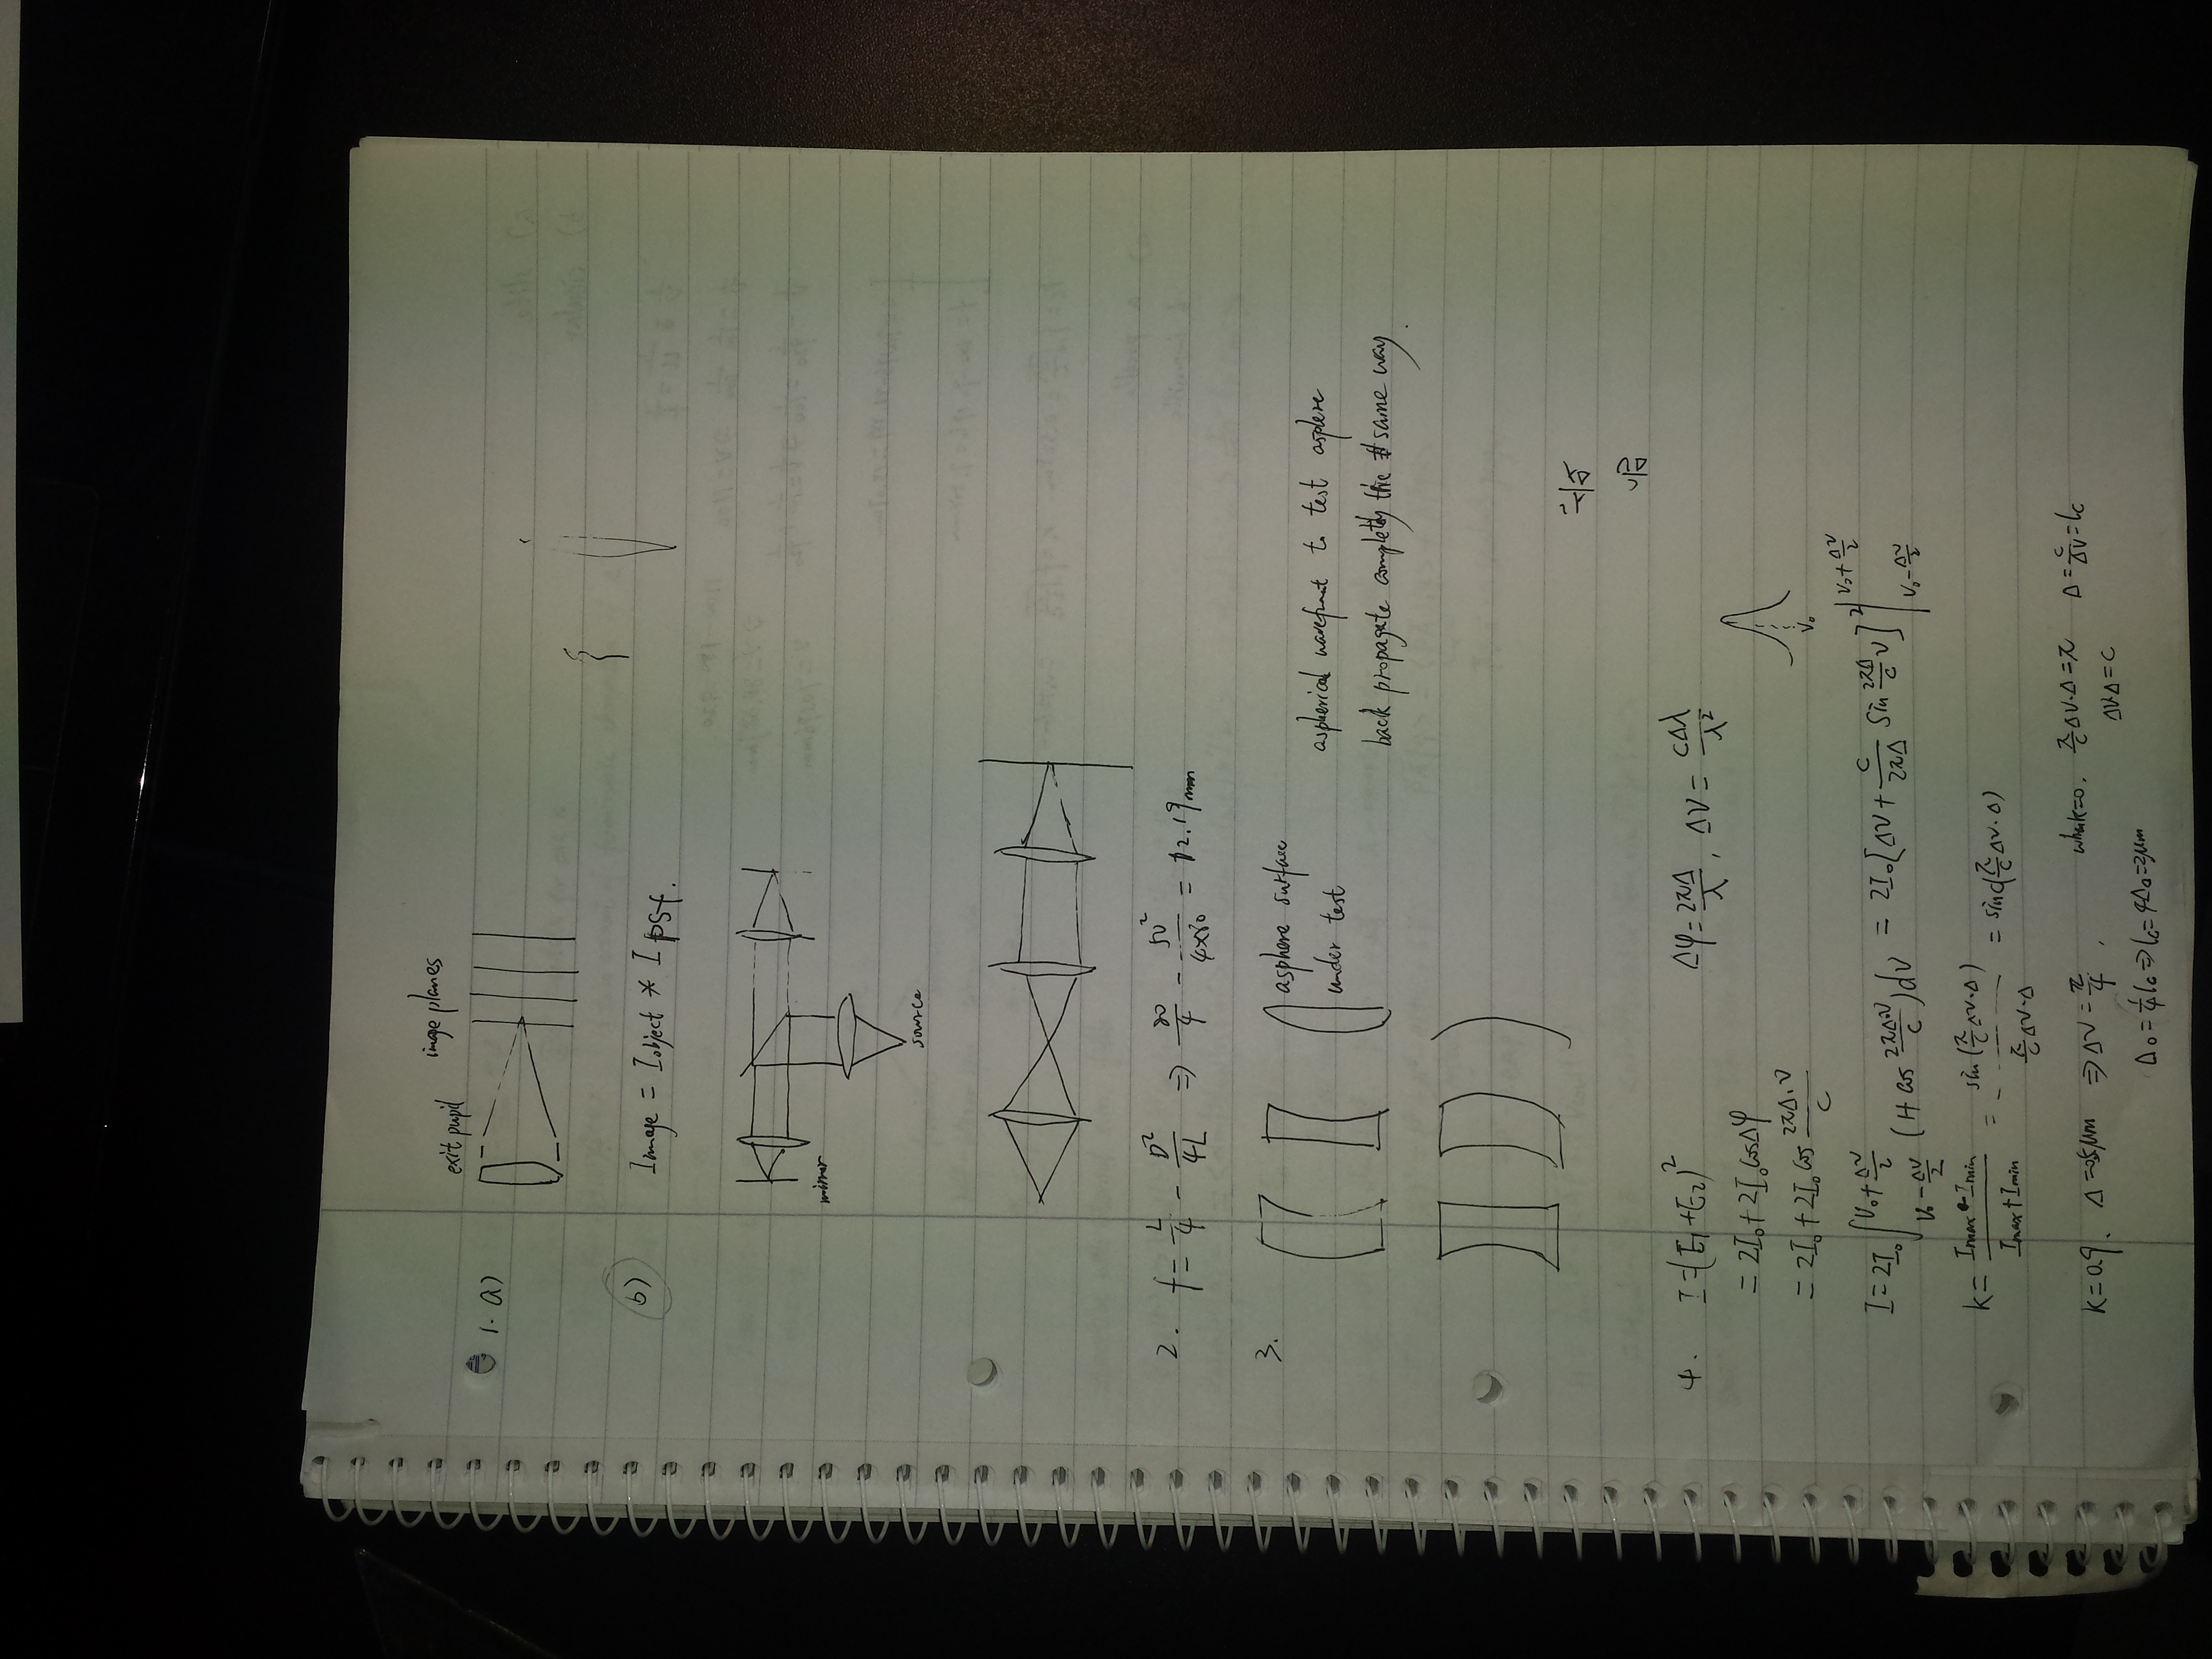 1. a)
exit pupil
image planes
b) Image = Iobject * Ipsf.
mirror
source
2. f = L/4 - D²/4L ⇒ 80/4 - 50²/4×80 = 12.19mm
3.
asphere surface
under test
aspherical wavefront to test asphere
back propagate completely the same way.
4. I = (E₁+E₂)²
Δφ = 2πΔ/λ, Δν = cΔλ/λ²
= 2I₀ + 2I₀ cosΔφ
= 2I₀ + 2I₀ cos 2πΔ·ν/c
ν₀
I = 2I₀ ∫ν₀-Δν/2 ν₀+Δν/2 (1+ cos 2πΔν/c) dν = 2I₀ [Δν + c/2πΔ sin 2πΔ/c ν] | ν₀+Δν/2 ν₀-Δν/2
k = Imax - Imin / Imax + Imin = sin(π/c Δν·Δ) / π/c Δν·Δ = sinc(π/c Δν·Δ)
when k=0, π/c Δν·Δ = π Δ = c/Δν = lc
Δν·Δ = c
k=0.9, Δ=0.5μm ⇒ Δν = π/4,
Δ₀ = 1/4 lc ⇒ lc = 4Δ₀ = 2μm